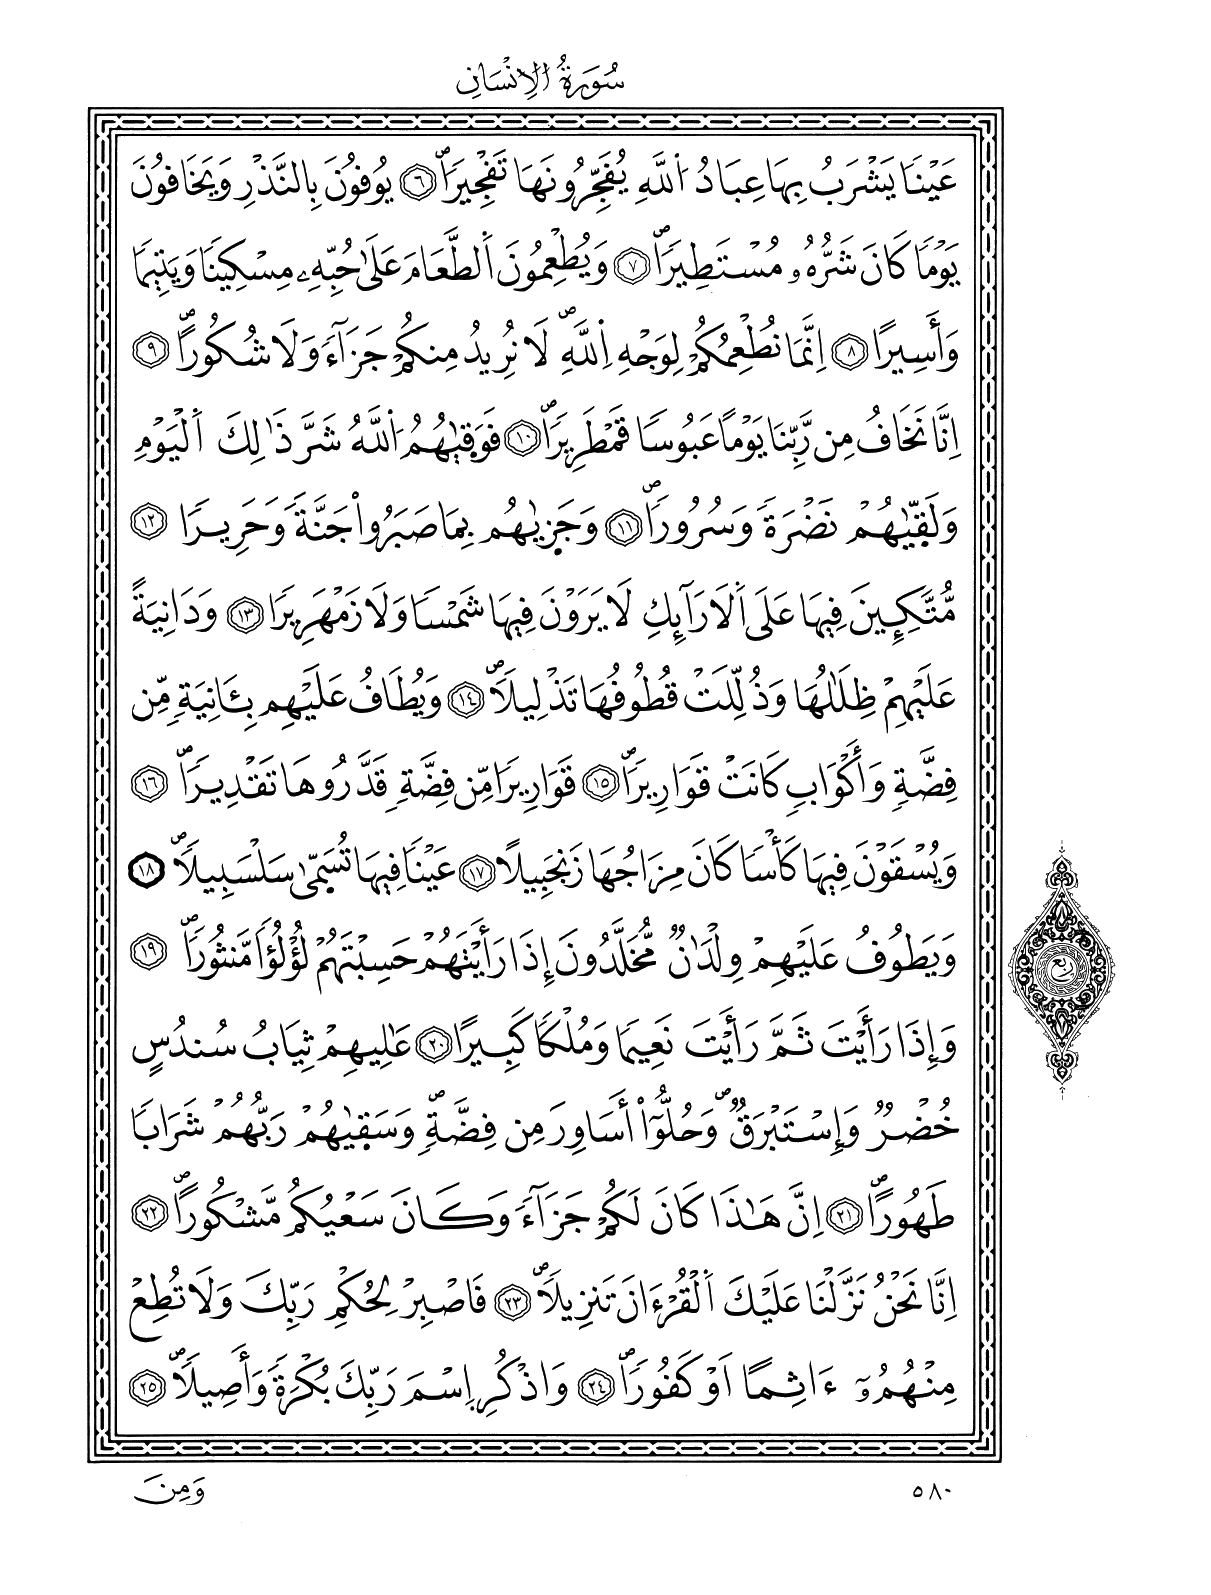 سُورَةُ الْإِنْسَانِ
عَيْنٗا يَشْرَبُ بِهَا عِبَادُ اُ۬للَّهِ يُفَجِّرُونَهَا تَفْجِيرٗاۖ ۝٦ يُوفُونَ بِالنَّذْرِ وَيَخَافُونَ
يَوْمٗا كَانَ شَرُّهُۥ مُسْتَطِيرٗاۖ ۝٧ وَيُطْعِمُونَ اَ۬لطَّعَامَ عَلَىٰ حُبِّهِۦ مِسْكِينٗا وَيَتِيمٗا
وَأَسِيرًا ۝٨ اِنَّمَا نُطْعِمُكُمْ لِوَجْهِ اِ۬للَّهِۖ لَا نُرِيدُ مِنكُمْ جَزَآءٗ وَلَا شُكُورًاۖ ۝٩
اِنَّا نَخَافُ مِن رَّبِّنَا يَوْمًا عَبُوسٗا قَمْطَرِيرٗاۖ ۝١٠ فَوَقٜىٰهُمُ اُ۬للَّهُ شَرَّ ذَٰلِكَ اَ۬لْيَوْمِ
وَلَقّٜىٰهُمْ نَضْرَةٗ وَسُرُورٗاۖ ۝١١ وَجَزٜىٰهُم بِمَا صَبَرُواْ جَنَّةٗ وَحَرِيرٗا ۝١٢
مُّتَّكِـِٕينَ فِيهَا عَلَى اَ۬لَارَآئِكِ لَا يَرَوْنَ فِيهَا شَمْسٗا وَلَا زَمْهَرِيرٗا ۝١٣ وَدَانِيَةً
عَلَيْهِمْ ظِلَٰلُهَا وَذُلِّلَتْ قُطُوفُهَا تَذْلِيلٗاۖ ۝١٤ وَيُطَافُ عَلَيْهِم بِـَٔانِيَةٖ مِّن
فِضَّةٖ وَأَكْوَابٖ كَانَتْ قَوَارِيرٗاۖ ۝١٥ قَوَارِيرٗا مِّن فِضَّةٖ قَدَّرُوهَا تَقْدِيرٗاۖ ۝١٦
وَيُسْقَوْنَ فِيهَا كَأْسٗا كَانَ مِزَاجُهَا زَنجَبِيلًا ۝١٧ عَيْنٗا فِيهَا تُسَمّٜىٰ سَلْسَبِيلٗاۖ ۝١٨
وَيَطُوفُ عَلَيْهِمْ وِلْدَٰنٞ مُّخَلَّدُونَ إِذَا رَأَيْتَهُمْ حَسِبْتَهُمْ لُؤْلُؤٗا مَّنثُورٗاۖ ۝١٩
وَإِذَا رَأَيْتَ ثَمَّ رَأَيْتَ نَعِيمٗا وَمُلْكٗا كَبِيرًا ۝٢٠ عَٰلِيهِمْ ثِيَابُ سُندُسٍ
خُضْرٞ وَإِسْتَبْرَقٞۖ وَحُلُّوٓاْ أَسَاوِرَ مِن فِضَّةٖۖ وَسَقٜىٰهُمْ رَبُّهُمْ شَرَابٗا
طَهُورًاۖ ۝٢١ اِنَّ هَٰذَا كَانَ لَكُمْ جَزَآءٗ وَكَانَ سَعْيُكُم مَّشْكُورًاۖ ۝٢٢
اِنَّا نَحْنُ نَزَّلْنَا عَلَيْكَ اَ۬لْقُرْءَانَ تَنزِيلٗاۖ ۝٢٣ فَاصْبِرْ لِحُكْمِ رَبِّكَ وَلَا تُطِعْ
مِنْهُمُۥٓ ءَاثِمًا اَوْ كَفُورٗاۖ ۝٢٤ وَاذْكُرِ اِسْمَ رَبِّكَ بُكْرَةٗ وَأَصِيلٗاۖ ۝٢٥
ربع
٥٨٠
وَمِنَ